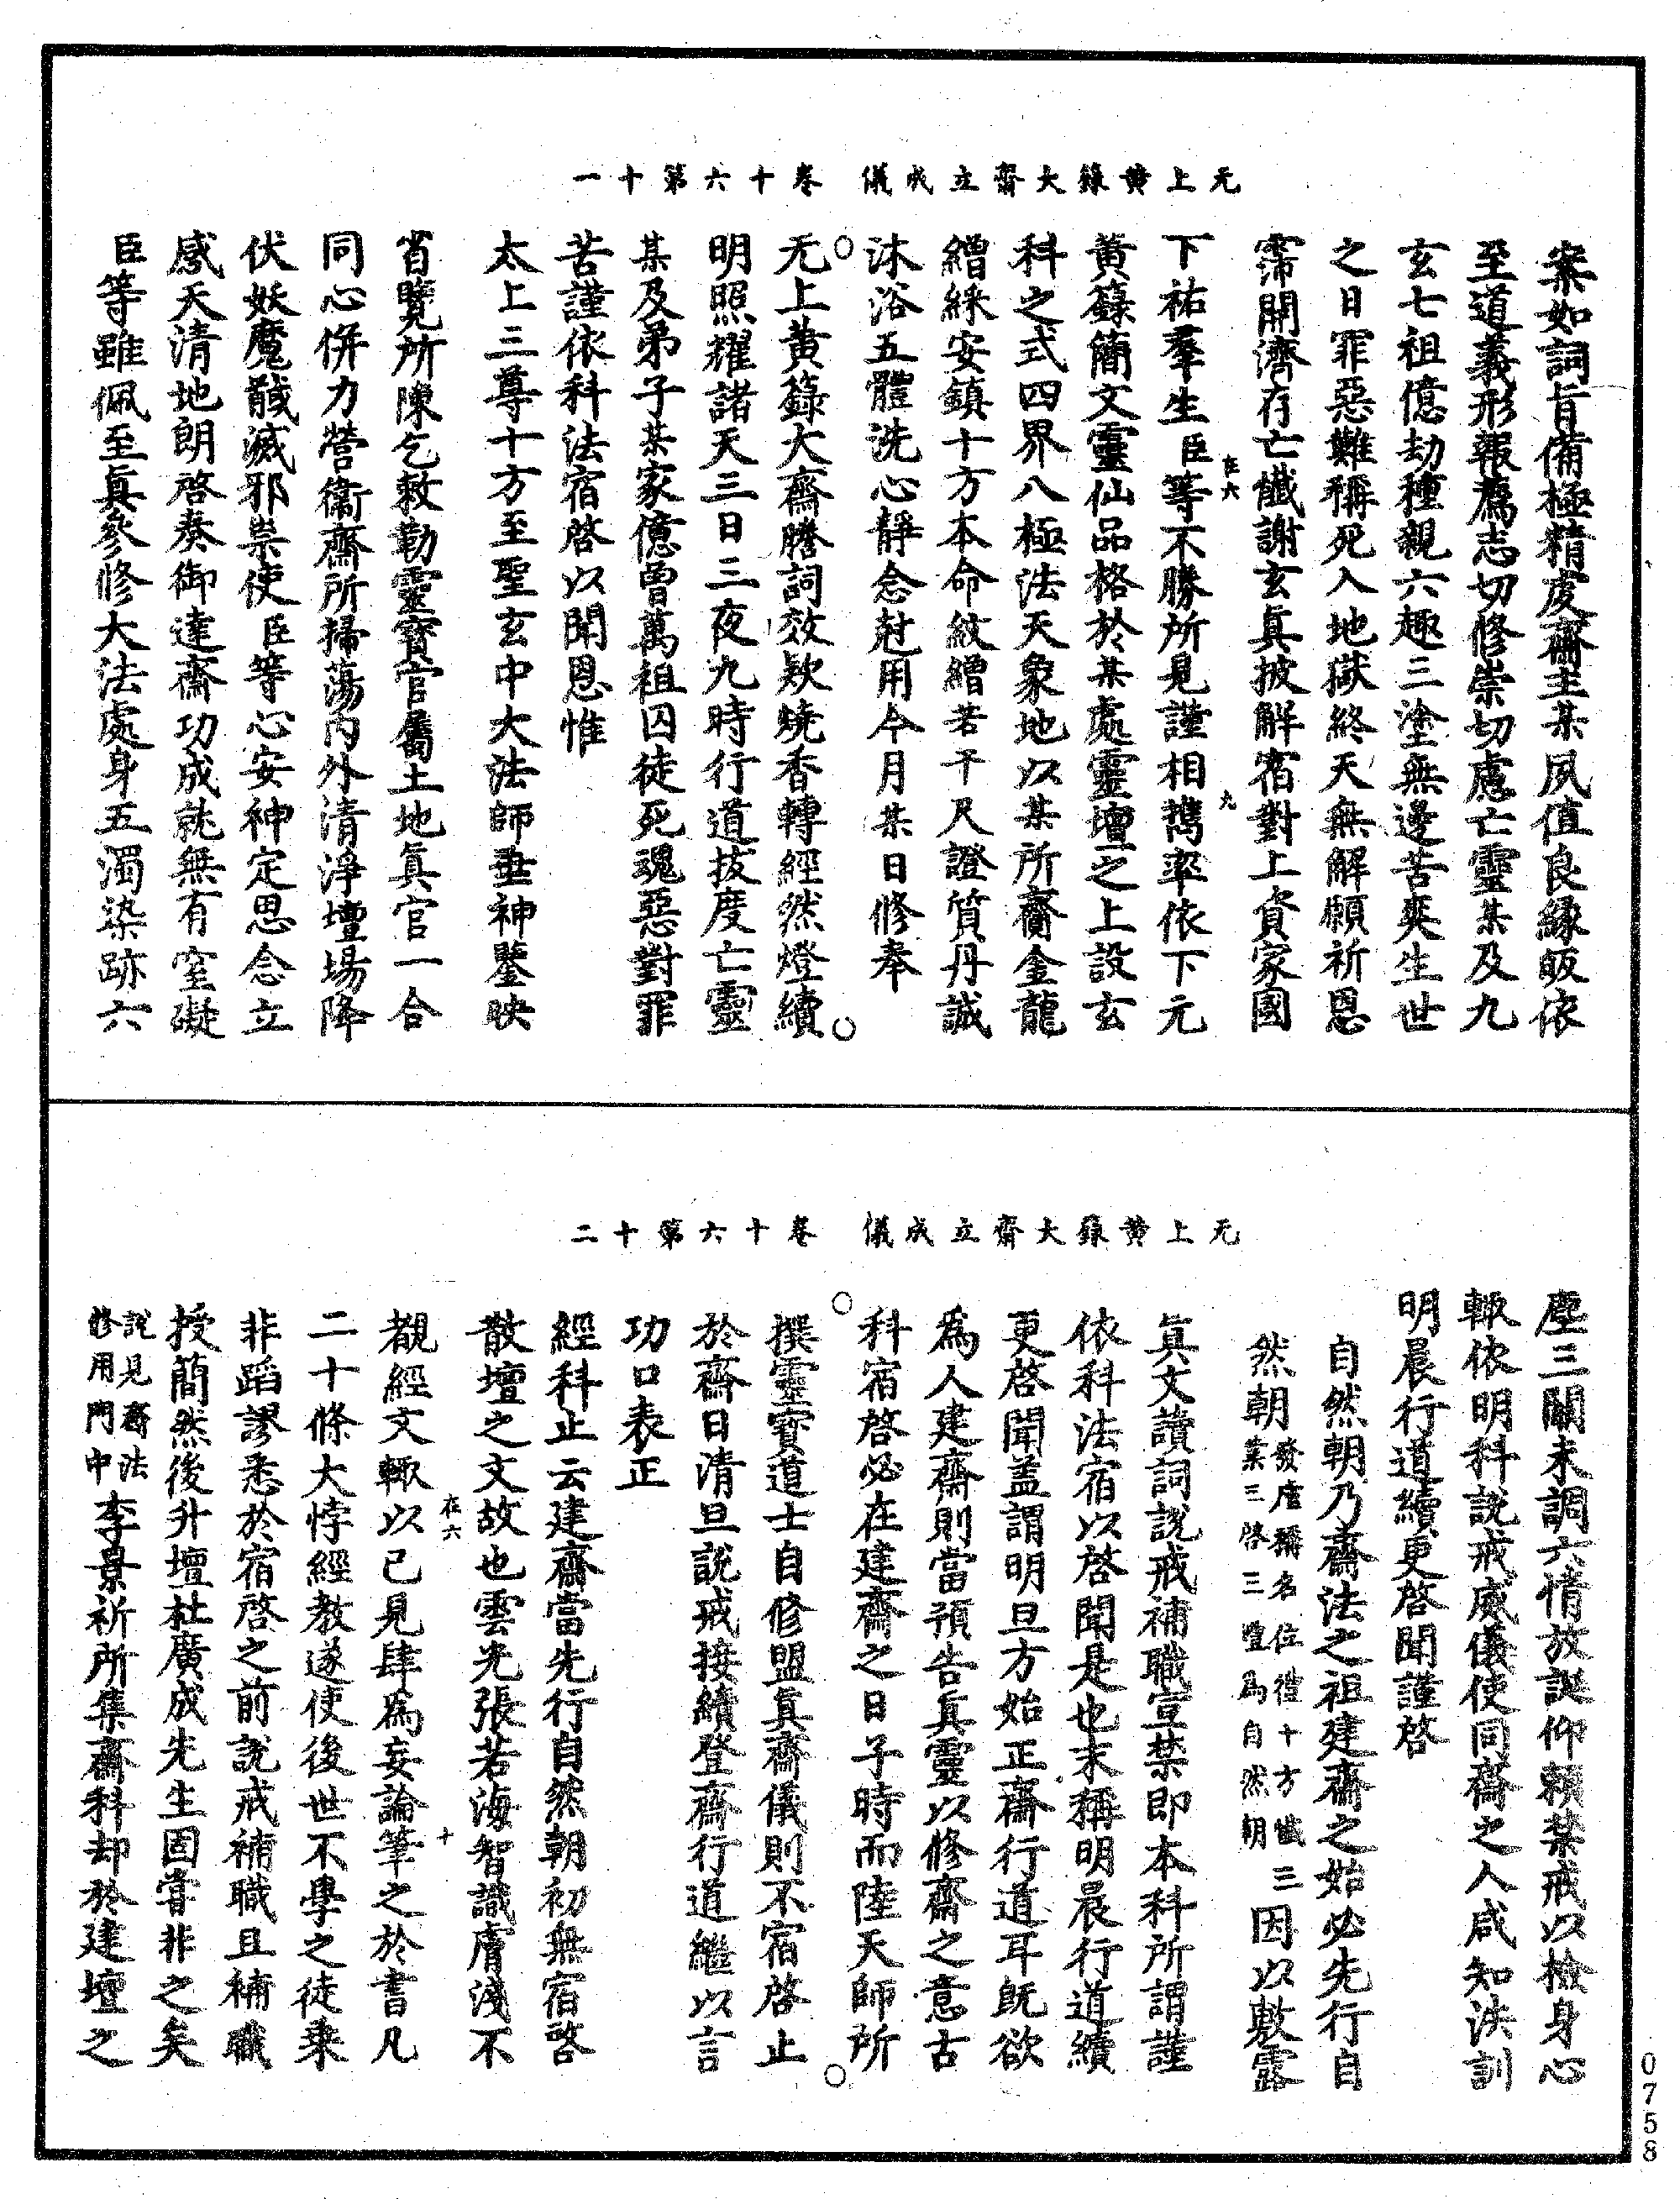 无上黃籙大齋立成儀 卷十六第十一
案如詞旨備極精虔齋主某夙值良緣皈依
至道義形報薦志切修崇切慮亡靈某及九
玄七祖億劫種親六趣三塗無邊苦爽生世
之日罪惡難稱死入地獄終天無解願祈恩
霈開濟存亡懺謝玄真披解宿對上資家國
下祐羣生臣等不勝所見謹相攜率依下元
在六
九
黃籙簡文靈仙品格於某處靈壇之上設玄
科之式四界八極法天象地以某所齎金龍
繒綵安鎮十方本命紋繒若干尺證質丹誠
沐浴五體洗心靜念尅用今月某日修奉
无上黃籙大齋謄詞效欵燒香轉經然燈續
明照耀諸天三日三夜九時行道拔度亡靈
某及弟子某家億曾萬祖囚徒死魂惡對罪
苦謹依科法宿啓以聞恩惟
太上三尊十方至聖玄中大法師垂神鑒映
省覽所陳乞敕勒靈寶官屬土地真官一合
同心併力營衞齋所掃蕩內外清淨壇場降
伏妖魔馘滅邪祟使臣等心安神定思念立
感天清地朗啓奏御達齋功成就無有窒礙
臣等雖佩至真參修大法處身五濁染跡六
无上黃籙大齋立成儀 卷十六第十二
塵三關未調六情放誕仰賴禁戒以檢身心
輒依明科說戒威儀使同齋之人咸知法訓
明晨行道續更啓聞謹啓
自然朝乃齋法之祖建齋之始必先行自
然朝發爐稱名位禮十方懺三業三啓三禮爲自然朝因以敷露
真文讀詞說戒補職宣禁即本科所謂謹
依科法宿以啓聞是也末稱明晨行道續
更啓聞蓋謂明旦方始正齋行道耳旣欲
爲人建齋則當預告真靈以修齋之意古
科宿啓必在建齋之日子時而陸天師所
撰靈寶道士自修盟真齋儀則不宿啓止
於齋日清旦說戒接續登齋行道繼以言
功口表正
經科止云建齋當先行自然朝初無宿啓
散壇之文故也雲光張若海智識膚淺不
覩經文輒以已見肆爲妄論筆之於書凡
在六
十
二十條大悖經教遂使後世不學之徒乘
非蹈謬悉於宿啓之前說戒補職且補職
授簡然後升壇杜廣成先生固嘗非之矣
說見齋法修用門中李景祈所集齋科却於建壇之
0758